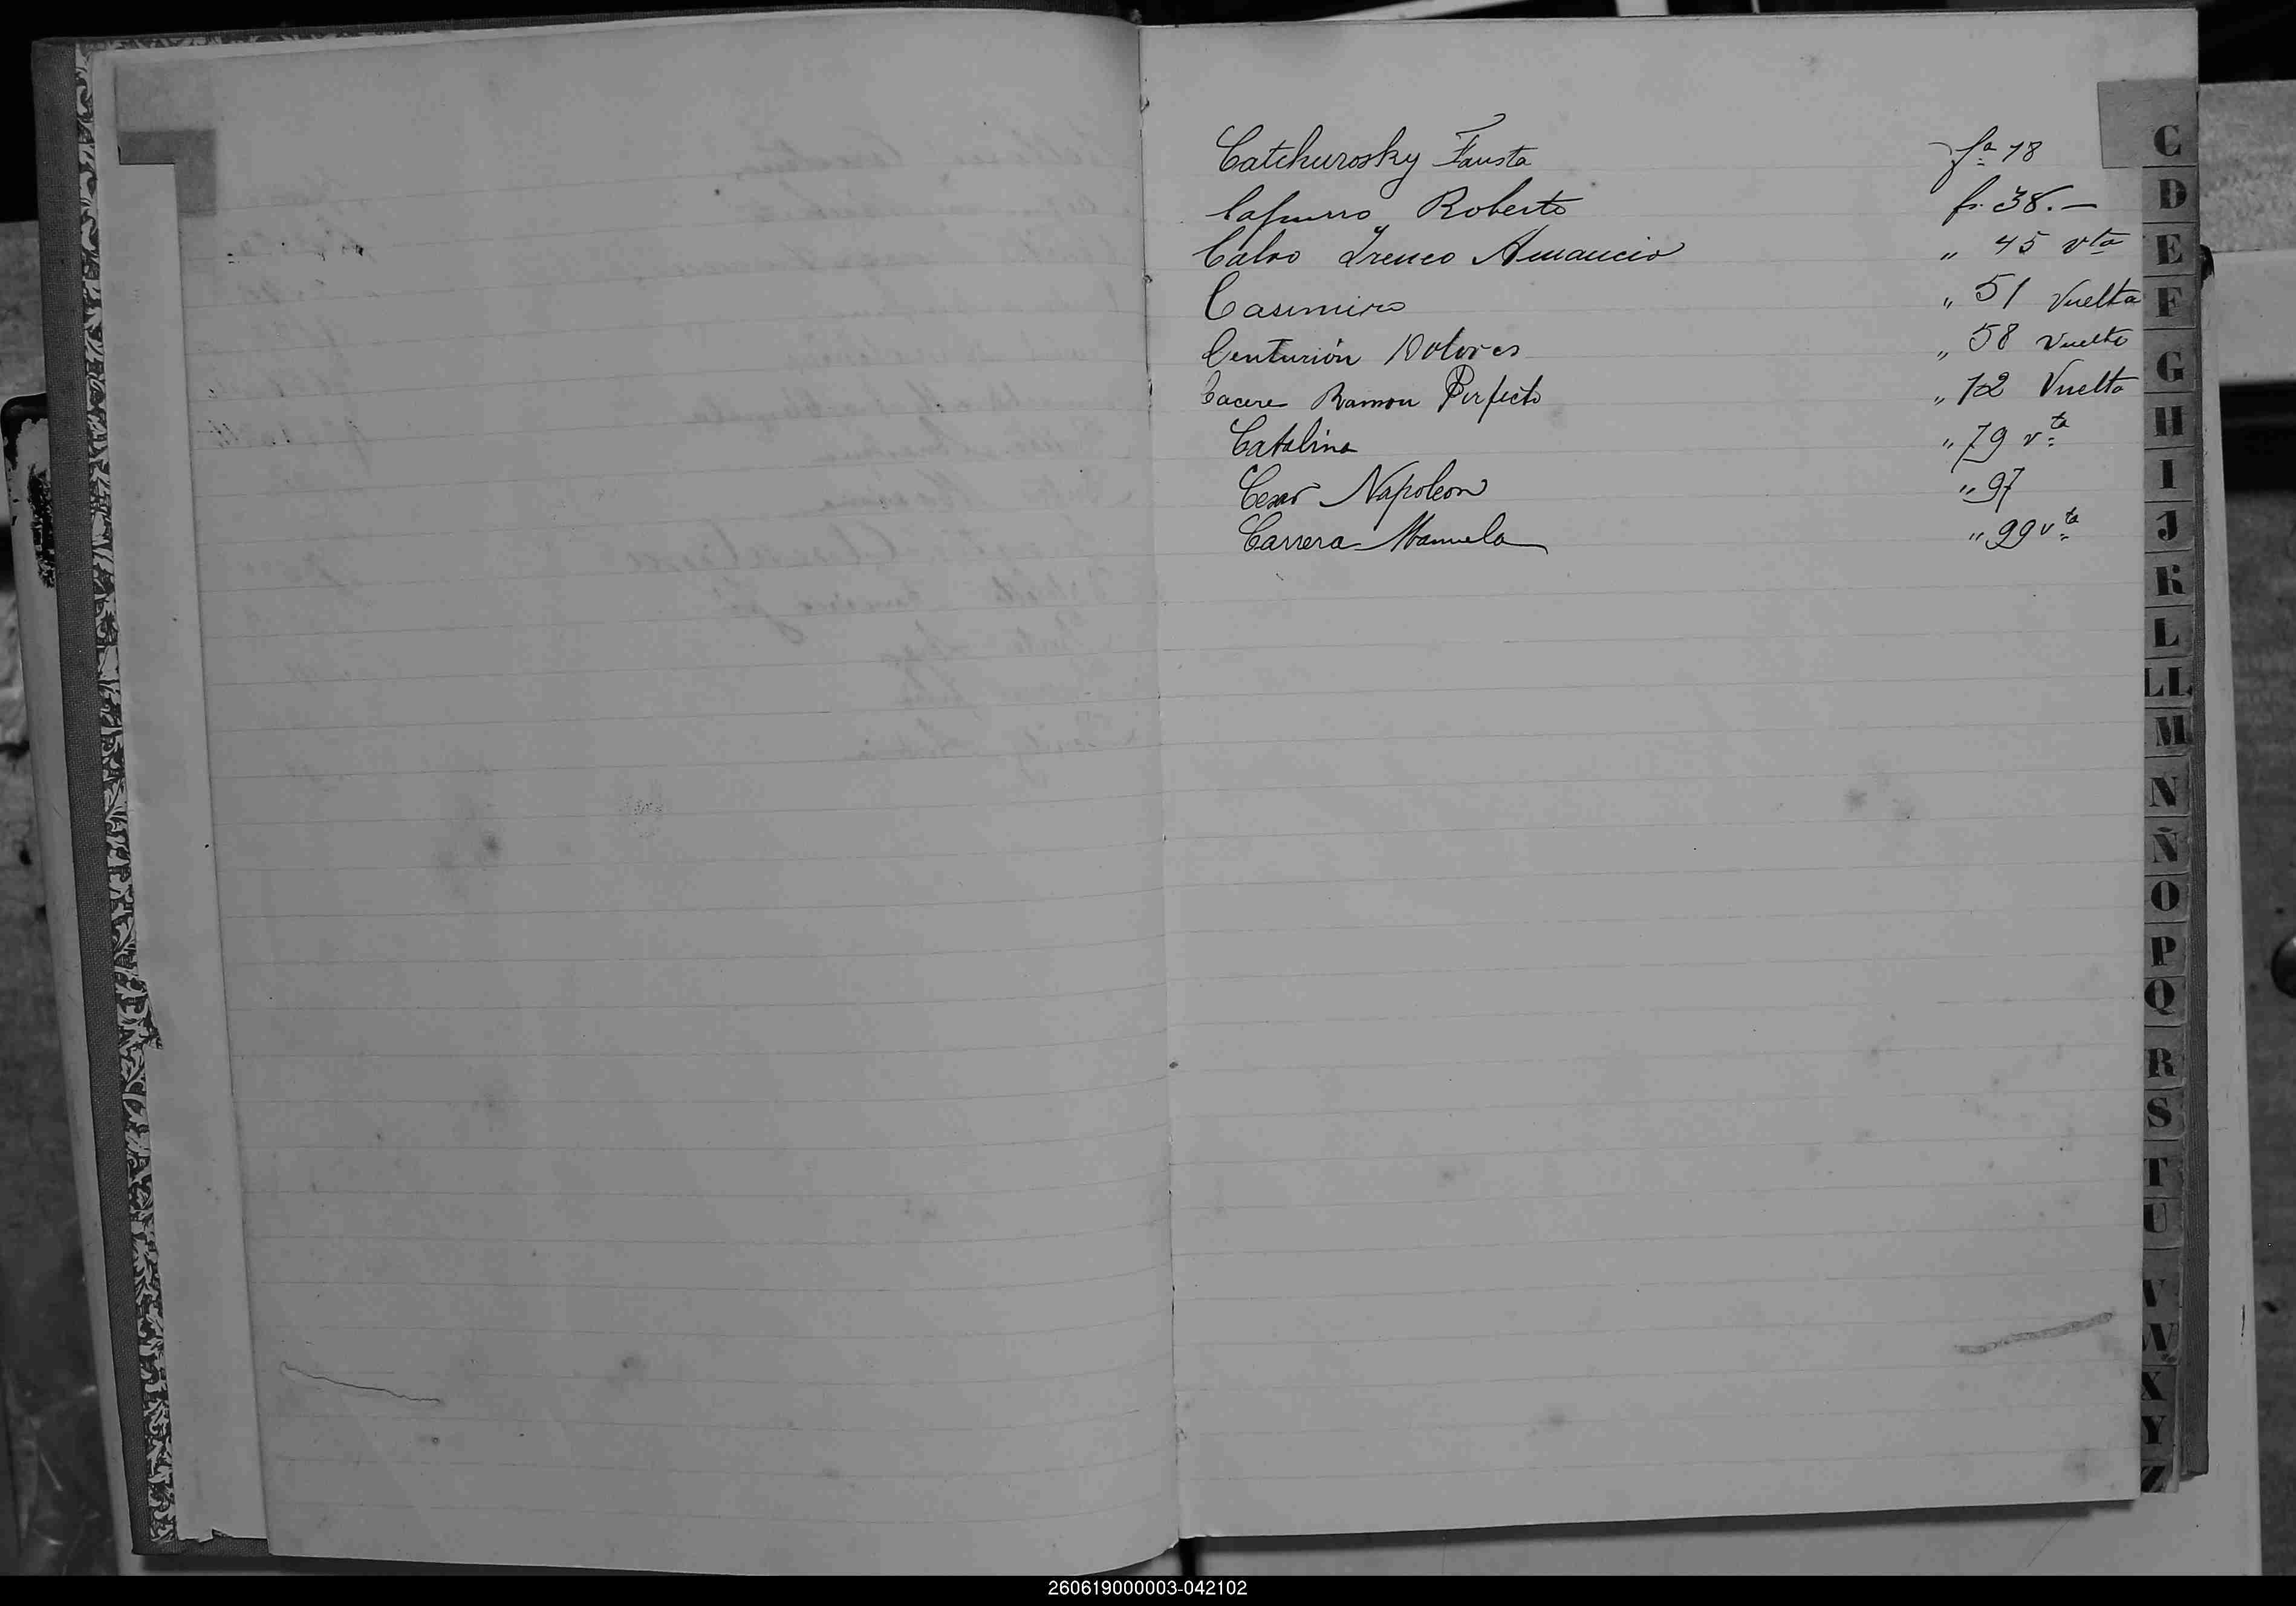 Catchurosky Fausta fª 18
Capurro Roberto fs. 38.—
Calvo Ireneo Amancio " 45 vta
Casimiro " 51 Vuelta
Centurión Dolores " 58 Vuelta
Cacere Ramon Perfecto " 72 Vuelta
Catalina " 79 vta
Cesar Napoleon " 97
Carrera Manuela " 99 vta
C
D
E
F
G
H
I
J
K
L
LL
M
N
Ñ
O
P
Q
R
S
T
U
V
W
X
Y
Z
260619000003-042102